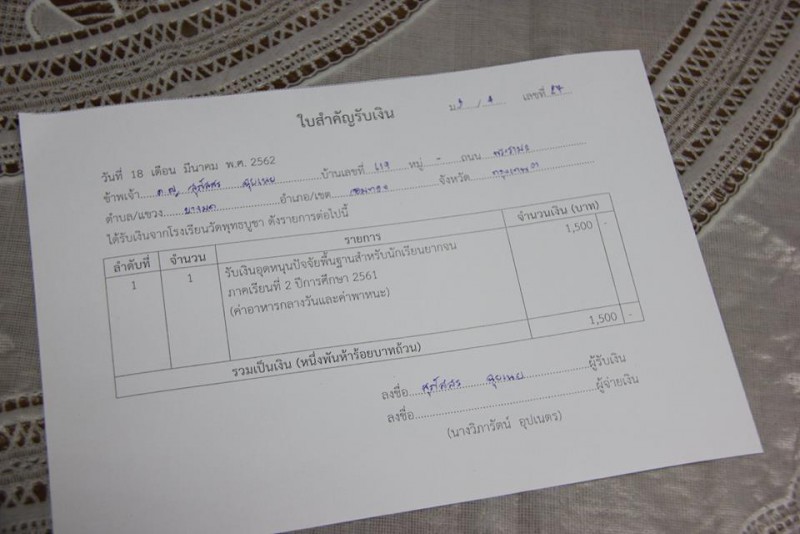 ใบสำคัญรับเงิน
ม.3 / 4 เลขที่ 27
วันที่ 18 เดือน มีนาคม พ.ศ. 2562
ข้าพเจ้า ด.ญ. สุภัสสร บ้านเลขที่ 119 หมู่ - ถนน พระราม2
ตำบล/แขวง บางมด อำเภอ/เขต จอมทอง จังหวัด กรุงเทพฯ
ได้รับเงินจากโรงเรียนวัดพุทธบูชา ดังรายการต่อไปนี้
ลำดับที่ จำนวน รายการ จำนวนเงิน (บาท)
1 1 รับเงินอุดหนุนปัจจัยพื้นฐานสำหรับนักเรียนยากจน 1,500 -
ภาคเรียนที่ 2 ปีการศึกษา 2561
(ค่าอาหารกลางวันและค่าพาหนะ)
รวมเป็นเงิน (หนึ่งพันห้าร้อยบาทถ้วน) 1,500 -
ลงชื่อ สุภัสสร ผู้รับเงิน
ลงชื่อ ผู้จ่ายเงิน
(นางวิภารัตน์ อุปเนตร)